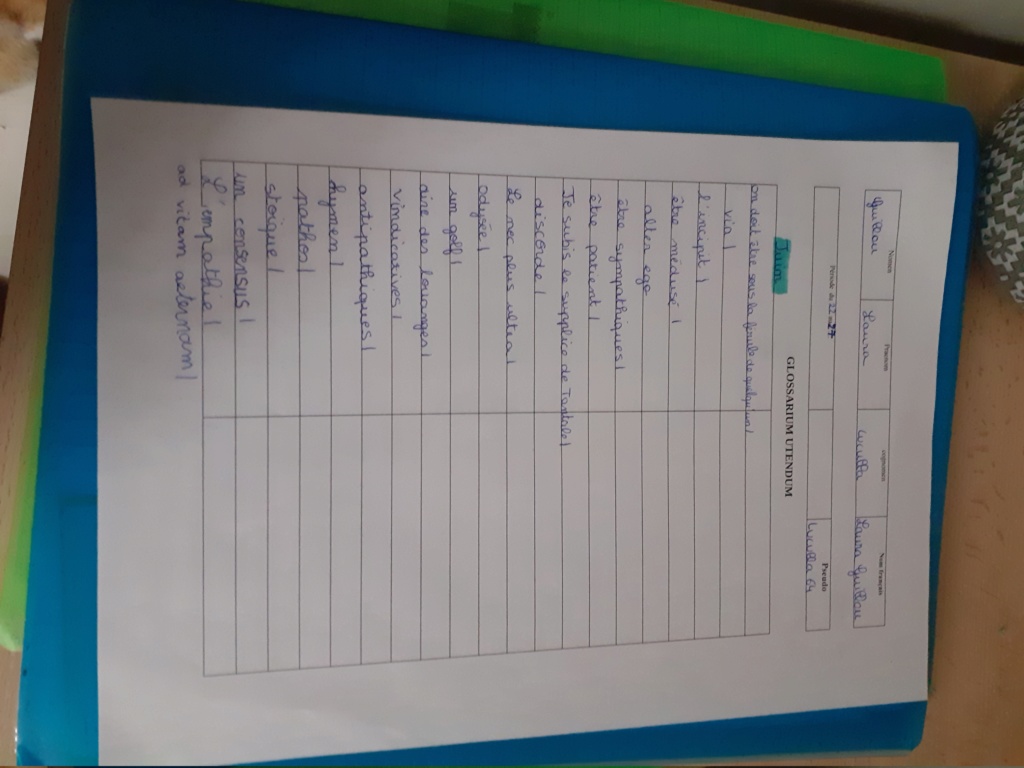 Nomen Prænom cognomen Nom français
Guillou Laura Lucilla Laura Guillou
Période du 22 au 27 Pseudo
Lucilla G
GLOSSARIUM UTENDUM
Juin
on doit être sous la férule de quelqu'un /
via /
l'incipit /
être médusé /
alter ego
être sympathiques /
être patient /
Je subis le supplice de Tantale /
discorde /
Le nec plus ultra /
odysée /
un golf /
aire des louanges /
vindicatives /
antipathiques /
hymen /
pathos /
stoïque /
un consensus /
L'empathie /
ad vitam aeternam /